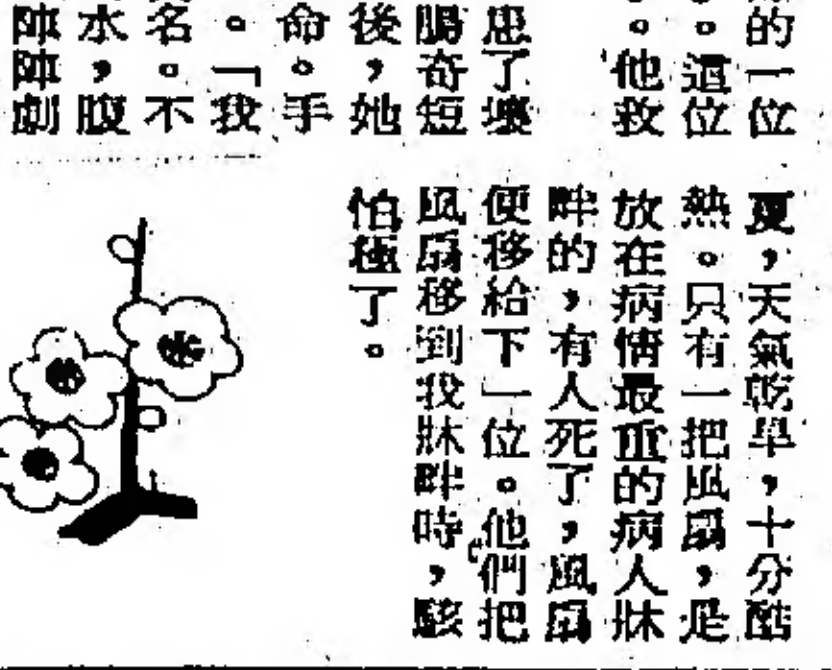 的一位
。這位
。他救
患了壞
腸奇短
後，她
命。手
。「我
名。不
水，腹
陣陣劇
夏，天氣乾旱，十分酷
熱。只有一把風扇，是
放在病情最重的病人牀
畔的，有人死了，風扇
便移給下一位。他們把
風扇移到我牀畔時，駭
怕極了。